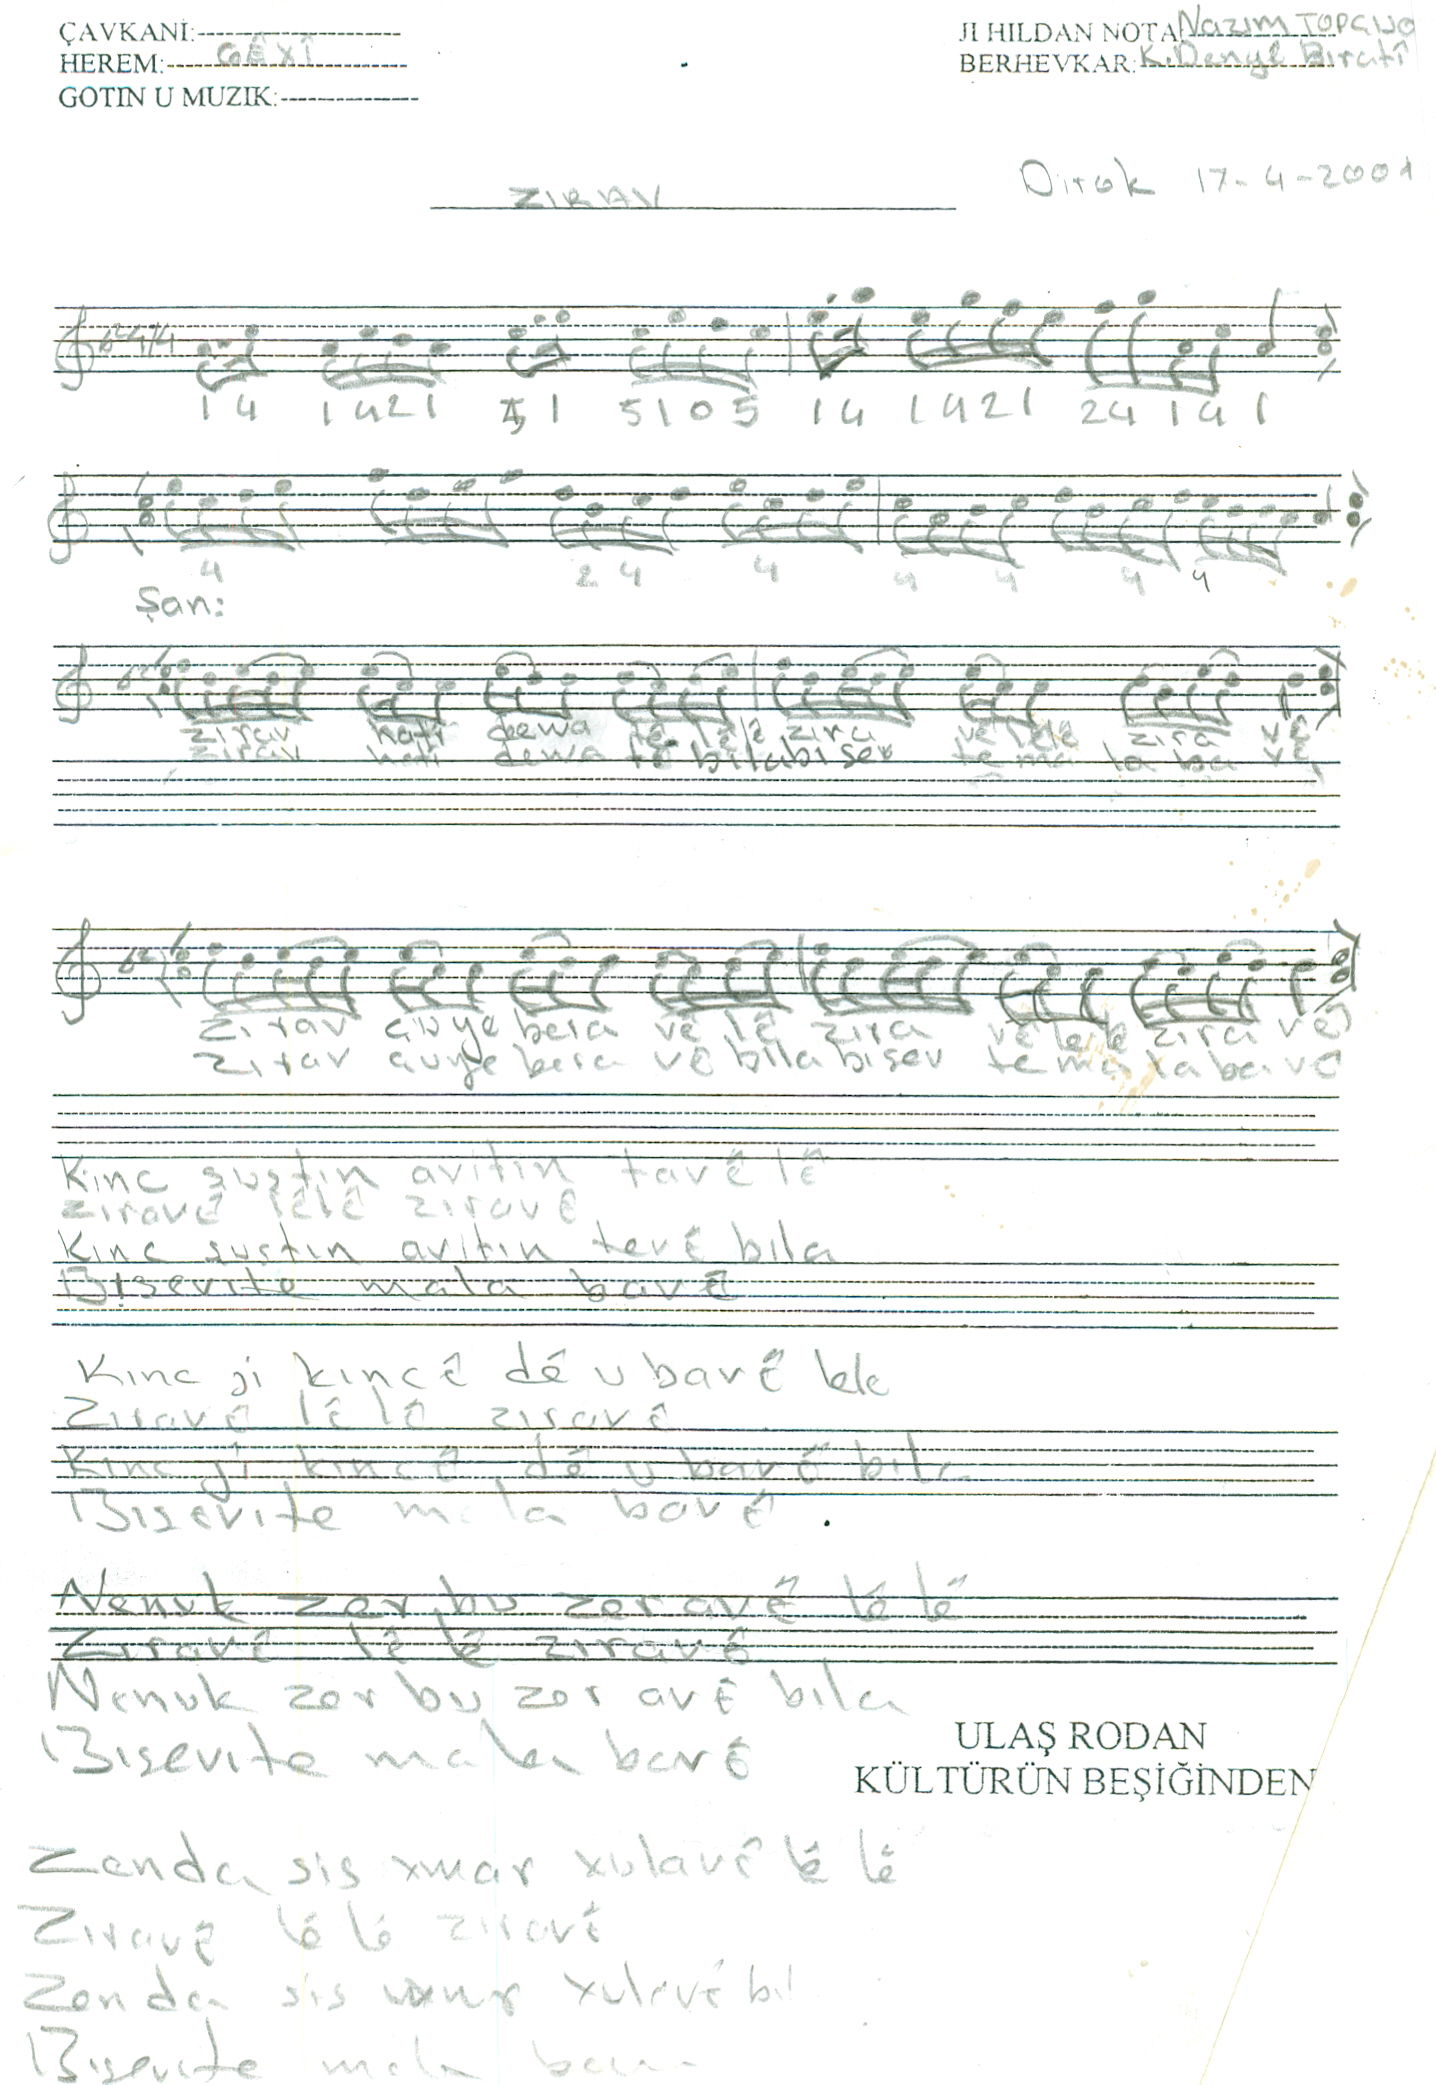 ÇAVKANİ:
HEREM: GÊXÎ
GOTIN U MUZIK:
JI HILDAN NOTA Nazım TOPÇUO
BERHEVKAR: K. Denge Biratî
Dirok 17-4-2001
ZIRAV
4/4
1 4 1 4 2 1 5 1 5 1 0 5 1 4 1 4 2 1 2 4 1 4 1
4 2 4 4 4 4 4 4
Şan:
zirav hati dewa tê lê lê zira vê lêlê zira vê
zirav hati dewa tê bila biser te ma la ba vê
zirav çuye bera vê lê zira vê le le zira vê
zirav çuye bera vê bila bisev te ma la ba vê
Kinc sustin avitin tavê lê
ziravê lêlê ziravê
Kinc sustin avitin tevê bila
Bisevite mala bavê
Kinc ji kincê dê u bavê lele
Ziravê lê lê ziravê
Kinc ji kincê dê u bavê bila
Bisevite mala bavê
Nenuk zer bu zer avê lê lê
Ziravê lê lê ziravê
Nenuk zer bu zer avê bila
Bisevite mala bavê
ULAŞ RODAN
KÜLTÜRÜN BEŞİĞİNDEN
Zenda sis xwar xulavê lê lê
Ziravê lê lê ziravê
Zenda sis xulavê bil
Bisevite mala